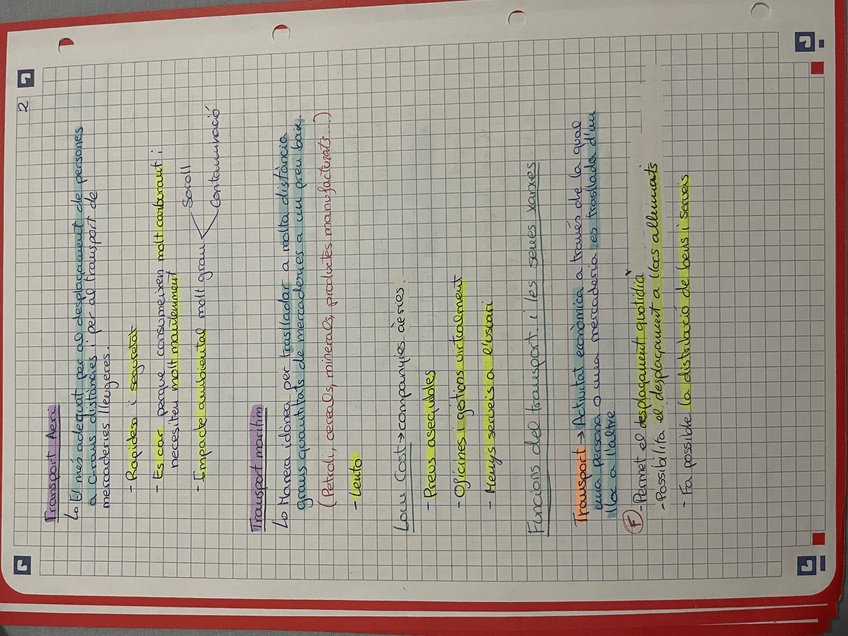 2
Transport Aeri
↳ El més adequat per al desplaçament de persones
a Grans distàncies i per al transport de
mercaderies lleugeres.
- Rapidesa i seguretat
- És car perque consumeixen molt carburant i
necesiten molt manteniment
- Impacte ambiental molt gran < Soroll
Contaminació
Transport marítim
↳ Manera idònea per traslladar a molta distància
grans quantitats de mercaderies a un preu baix.
(Petroli, cereals, minerals, productes manufacturats...)
- Lento
Low Cost → companyies aèries.
- Preus asequibles
- Oficines i gestions virtualment
- Menys serveis a l'usuari
Funcions del transport i les seves xarxes
Transport → Activitat econòmica a través de la qual
una persona o una mercaderia es trasllada d'un
lloc a l'altre
(F) - Permet el desplaçament quotidià
- Possibilita el desplaçament a llocs allunyats
- Fa possible la distribució de bens i serveis